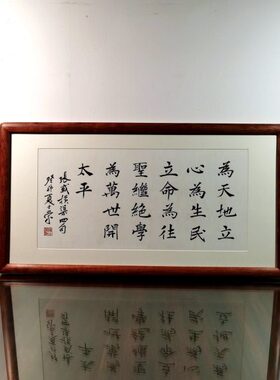 為天地立
心為生民
立命為往
聖繼絕學
為萬世開
太平
張載橫渠四句